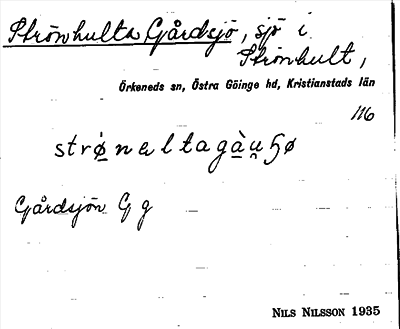 Strönhulta Gårdsjö, sjö i
Strönhult,
Örkeneds sn, Östra Göinge hd, Kristianstads län
116
Gårdsjön G g
NILS NILSSON 1935